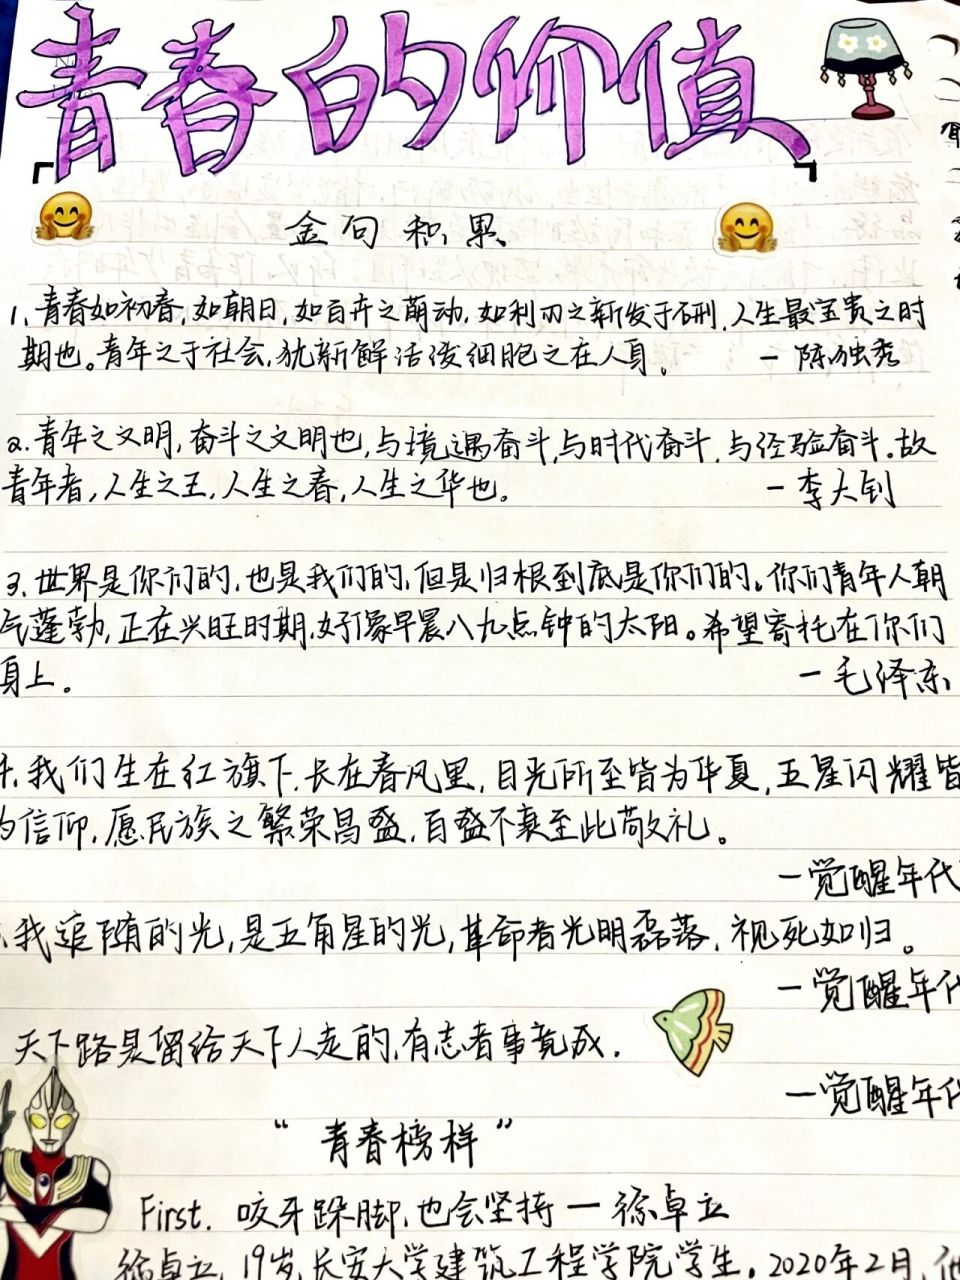 青春的价值
金句积累
1、青春如初春,如朝日,如百卉之萌动,如利刃之新发于硎,人生最宝贵之时
期也。青年之于社会,犹新鲜活泼细胞之在人身。 一陈独秀
2.青年之文明,奋斗之文明也,与境遇奋斗,与时代奋斗,与经验奋斗。故
青年者,人生之王,人生之春,人生之华也。 一李大钊
3.世界是你们的,也是我们的,但是归根到底是你们的。你们青年人朝
气蓬勃,正在兴旺时期,好像早晨八九点钟的太阳。希望寄托在你们
身上。 一毛泽东
我们生在红旗下,长在春风里,目光所至皆为华夏,五星闪耀皆
为信仰,愿民族之繁荣昌盛,百盛不衰至此敬礼。
一觉醒年代
我追随的光,是五角星的光,革命者光明磊落,视死如归。
一觉醒年代
天下路是留给天下人走的,有志者事竟成.
一觉醒年代
“青春榜样”
First. 咬牙跺脚,也会坚持一徐卓立
徐卓立,19岁,长安大学建筑工程学院学生。2020年2月,他